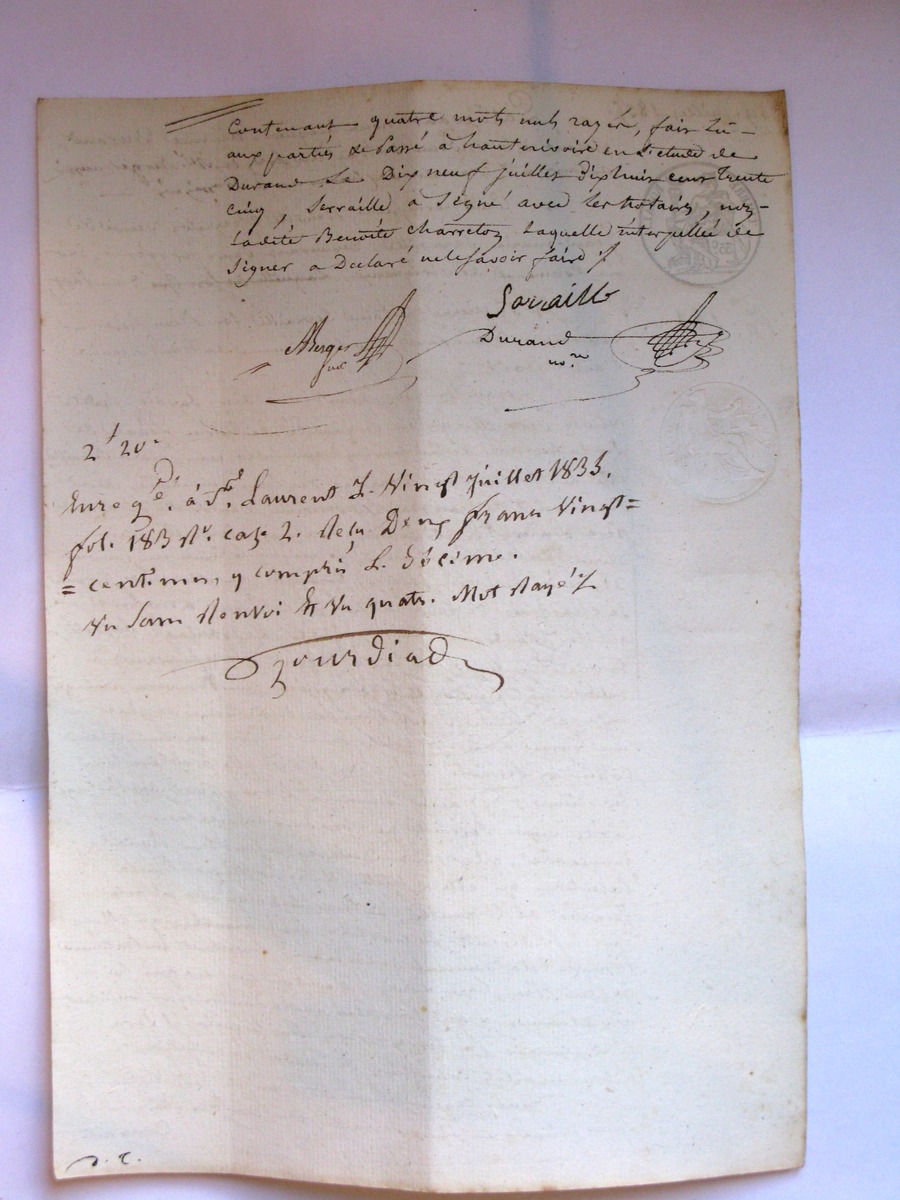 Contenant quatre mots nuls rayés, fait lu -
aux parties & Passé à hauterivoire en L'etude de
Durand Le Dix neuf juillet Dix huit cent trente
cinq, Serraille a signé avec les notaires, non
Ladité Benoite Charreton Laquelle interpellée de
signer a Declaré ne le savoir faire ./.
Serraille
Berger
Durand
nore
2f 20c
Enregé. à St. Laurent L. Vingt Juillet 1835.
fol. 183 Ro. case 2. Reçu Deux francs Vingt=
=centimes, y compris L. Décime.
Vu sans Renvoi Et Vu quatre Mot Rayé ./.